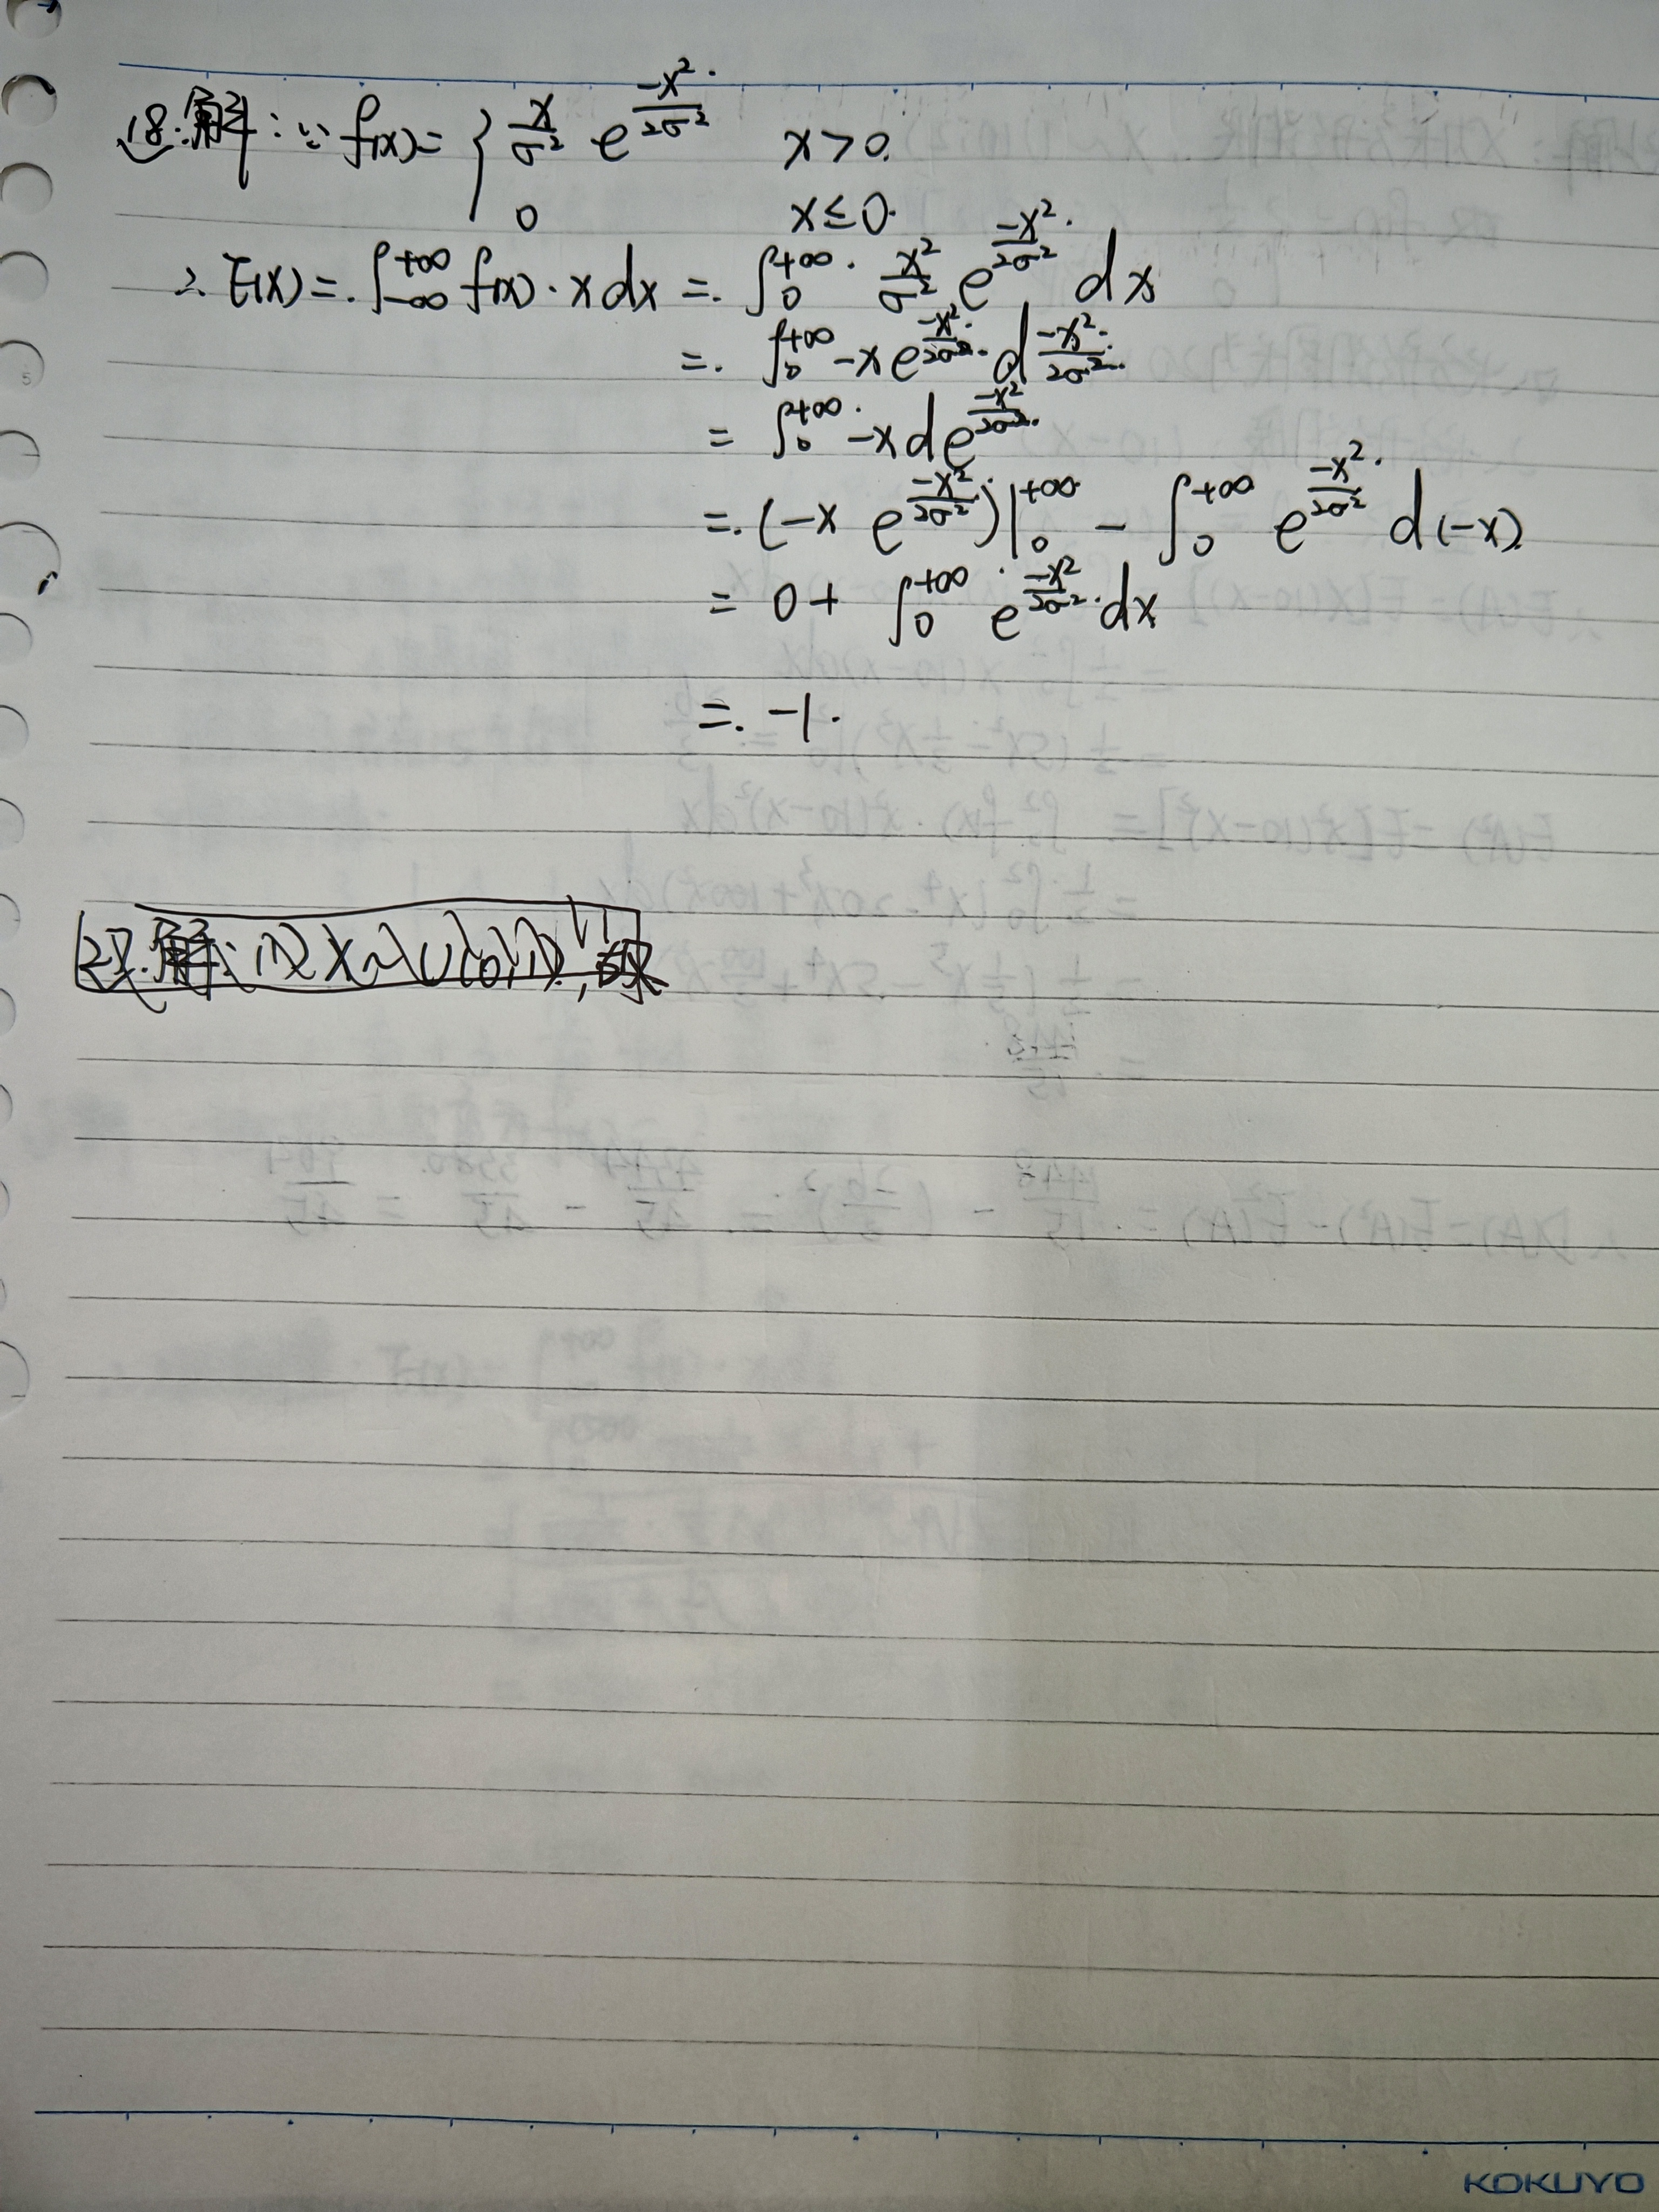 18.解:∵ f(x)= { x/σ² e^(-x²/2σ²) x>0.
0 x≤0.
∴ E(X)=∫_{-∞}^{+∞} f(x)·x dx = ∫_0^{+∞} x²/σ² e^(-x²/2σ²) dx
= ∫_0^{+∞} -x e^(-x²/2σ²) d -x²/2σ²
= ∫_0^{+∞} -x d e^(-x²/2σ²)
= (-x e^(-x²/2σ²))|_0^{+∞} - ∫_0^{+∞} e^(-x²/2σ²) d(-x)
= 0+ ∫_0^{+∞} e^(-x²/2σ²) dx
= -1.
KOKUYO